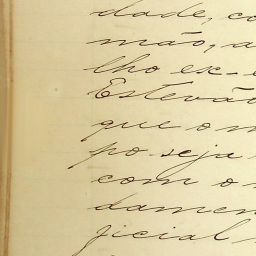 dade, co
mão, a
lho ex-
Estevão
que o m
po seja
com o
damen
ficial